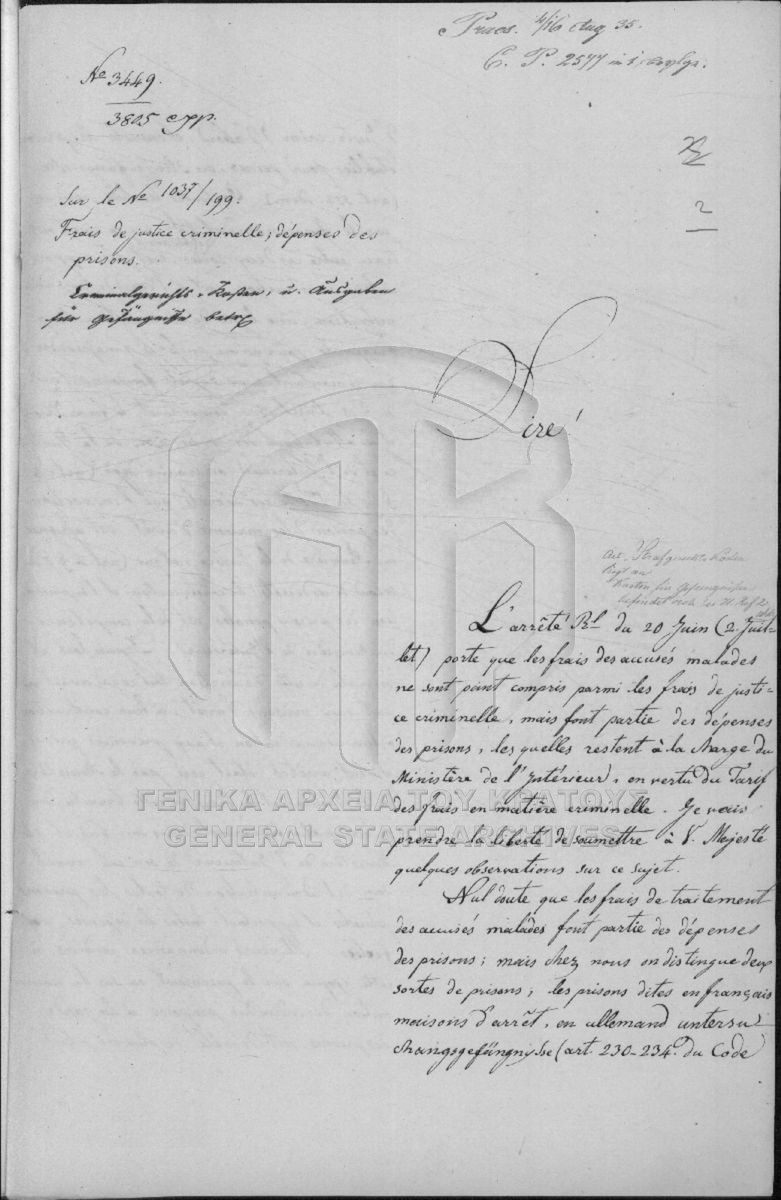 Praes. 4/16 Aug 35.
C. P. 2577
No 3449.
3805 exp.
2
Sur le No 1037/199.
Frais de justice criminelle; dépenses des
prisons.
Criminalgerichts-Kosten, u. Ausgaben
für Gefängnisse betr.
Sire!
L'arrêté Rl du 20 Juin (2 Juil-
let) porte que les frais des accusés malades
ne sont point compris parmi les frais de justi=
ce criminelle, mais font partie des dépenses
des prisons, les quelles restent à la charge du
Ministère de l'Intérieur, en vertu du Tarif
des frais en matière criminelle. Je vais
prendre la liberté de soumettre à V. Majesté
quelques observations sur ce sujet.
Nul doute que les frais de traitement
des accusés malades font partie des dépenses
des prisons; mais chez nous on distingue deux
sortes de prisons; les prisons dites en français
maisons d'arrêt, en allemand untersu-
chungsgefängnisse (art. 230-234. du Code
ΓΕΝΙΚΑ ΑΡΧΕΙΑ ΤΟΥ ΚΡΑΤΟΥΣ
GENERAL STATE ARCHIVES